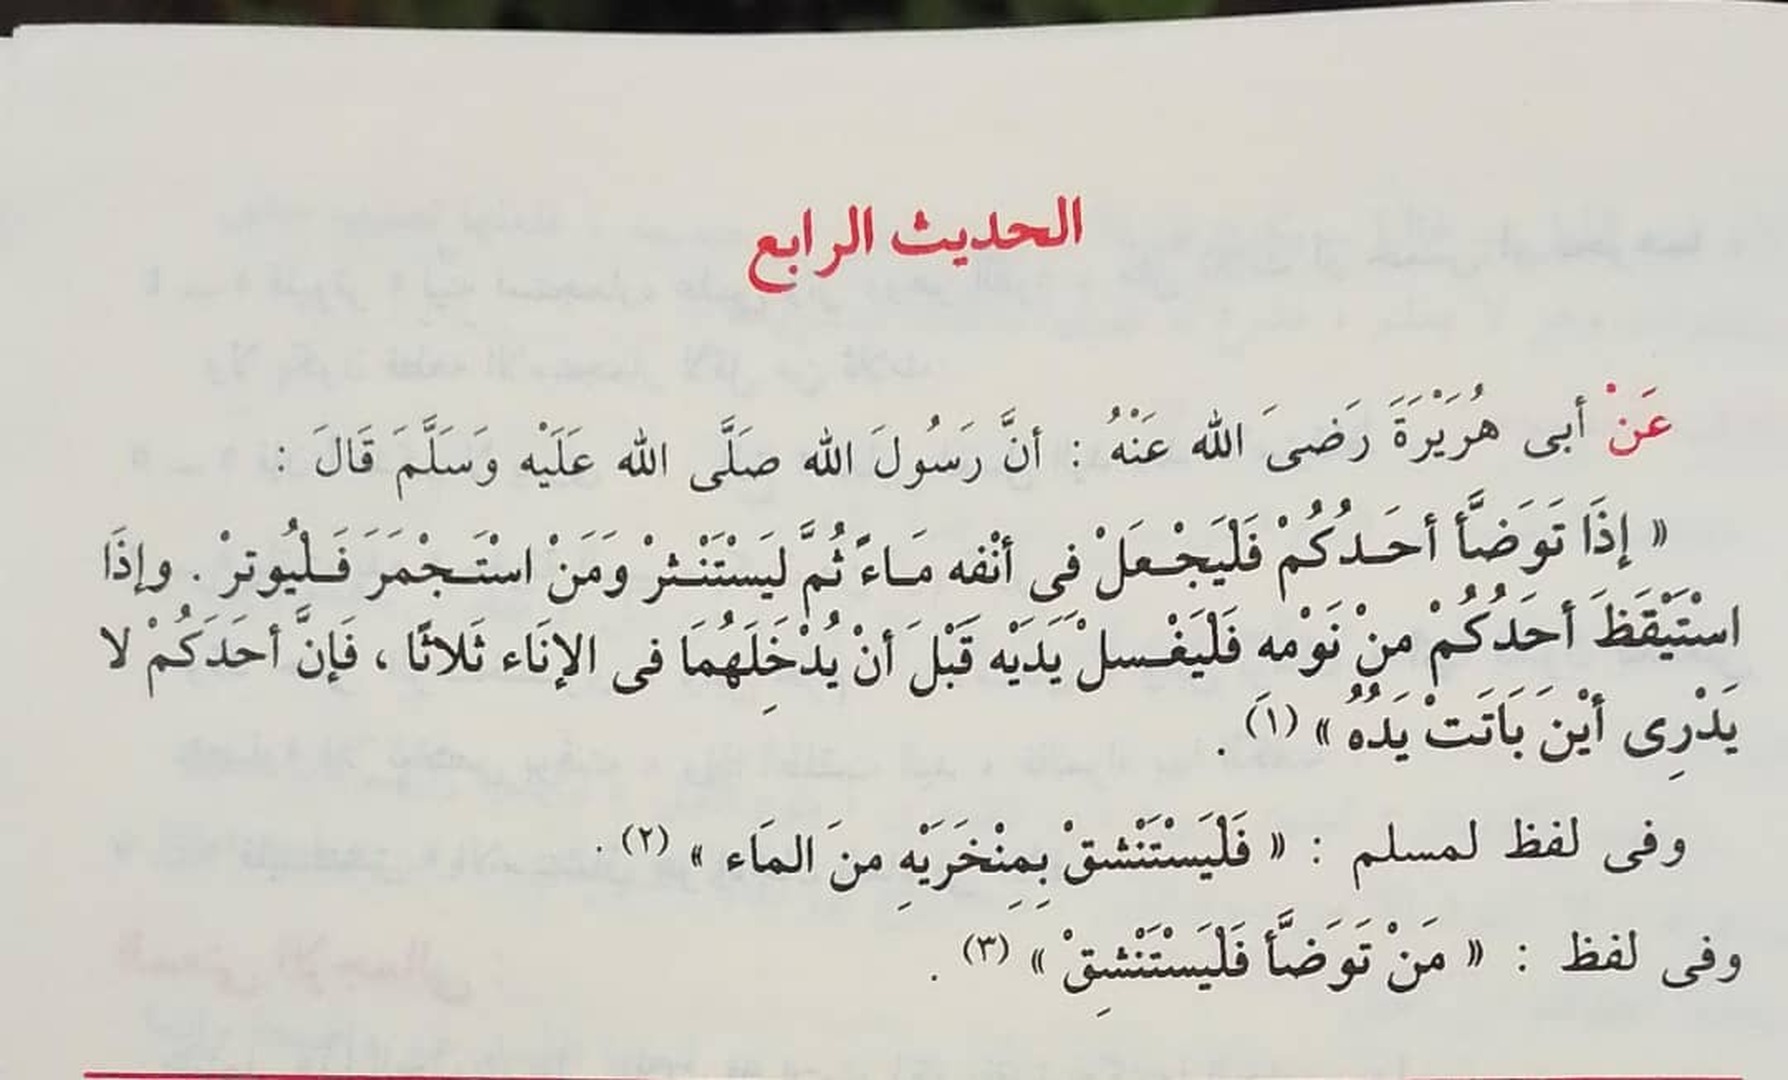 الحديث الرابع
عَنْ أبى هُرَيْرَةَ رَضىَ الله عَنْهُ : أنَّ رَسُولَ الله صَلَّى الله عَلَيْه وَسَلَّمَ قَالَ :
« إذَا تَوَضَّأ أحَدُكُمْ فَلْيَجْعَلْ فى أنْفه مَاءً ثُمَّ ليَسْتَنْثرْ وَمَنْ اسْتَجْمَرَ فَلْيُوترْ . وإذَا
اسْتَيْقَظَ أحَدُكُمْ منْ نَوْمه فَلْيَغْسلْ يَدَيْه قَبْلَ أنْ يُدْخِلَهُمَا فى الإنَاء ثَلاثًا ، فَإنَّ أحَدَكُمْ لا
يَدْرِى أيْنَ بَاتَتْ يَدُهُ » (١) .
وفى لفظ لمسلم : « فَلْيَسْتَنْشقْ بِمِنْخَرَيْهِ منَ المَاء » (٢) .
وفى لفظ : « مَنْ تَوَضَّأ فَلْيَسْتَنْشِقْ » (٣) .